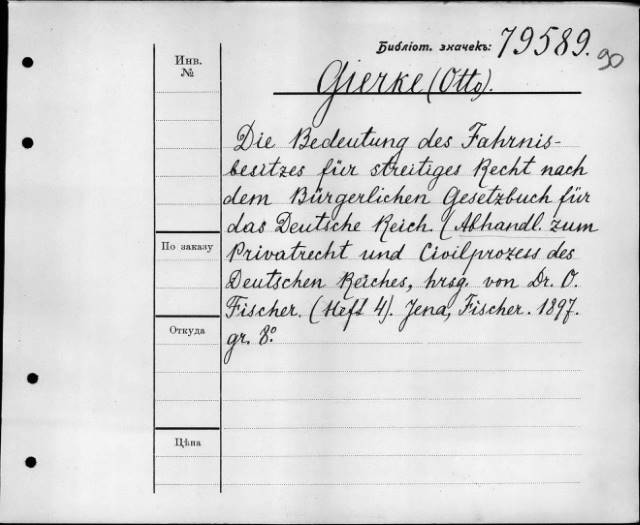 Библіот. значекъ: 79589.
90
Инв.
№
Gierke (Otto).
Die Bedeutung des Fahrnis-
besitzes für streitiges Recht nach
dem Bürgerlichen Gesetzbuch für
das Deutsche Reich. (Abhandl. zum
По заказу
Privatrecht und Civilprozess des
Deutschen Reiches, hrsg. von Dr. O.
Fischer. (Heft 4). Jena, Fischer. 1897.
Откуда
gr. 8º.
Цѣна